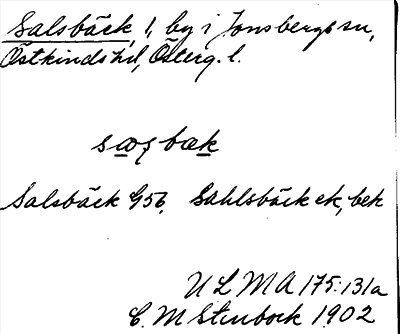 Salsbäck, 1, by i Jonsbergs sn,
Östkinds hd, Österg. l.
Salsbäck G56, Sahlsbäck ek, bek
ULMA 175:131a
C. M Stenbock 1902